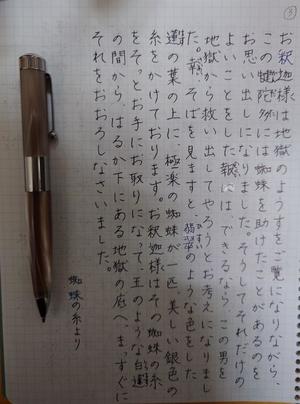 ③
お釈迦様は地獄のようすをご覧になりながら、
この犍陀多には蜘蛛を助けたことがあるのを
お思い出しになりました。そうしてそれだけの
よいことをした報には、できるなら、この男を
地獄から救い出してやろうとお考えになりまし
た。幸、そばを見ますと、翡翠のような色をした
ひすい
蓮の葉の上に、極楽の蜘蛛が一匹、美しい銀色の
糸をかけております。お釈迦様はその蜘蛛の糸
をそっとお手にお取りになって、玉のような白蓮
の間から、はるか下にある地獄の底へ、まっすぐに
それをおおろしなさいました。
蜘蛛の糸より